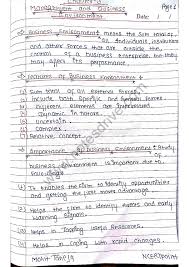 Page 1
Management and Business
Environment
Date: / /
Business Environment means the sum total of
all individuals, institutions
and other forces that are outside the
control of a business enterprise but they
may affect its performance.
Features of Business Environment
(a) Sum total of all external forces
(b) Include both specific and general forces
(c) Different elements are interrelated
(d) Dynamic in nature
(e) Uncertain
(f) Complex
(g) Relative concept
Importance of Business Environment: Study
of business environment is important due to
(1) It enables the firm to identify opportunities
and getting the first mover advantage
(2) Helps the firm to identify threats and early
warning signals
(3) Helps in Tapping useful Resources.
(4) Helps in coping with rapid changes.